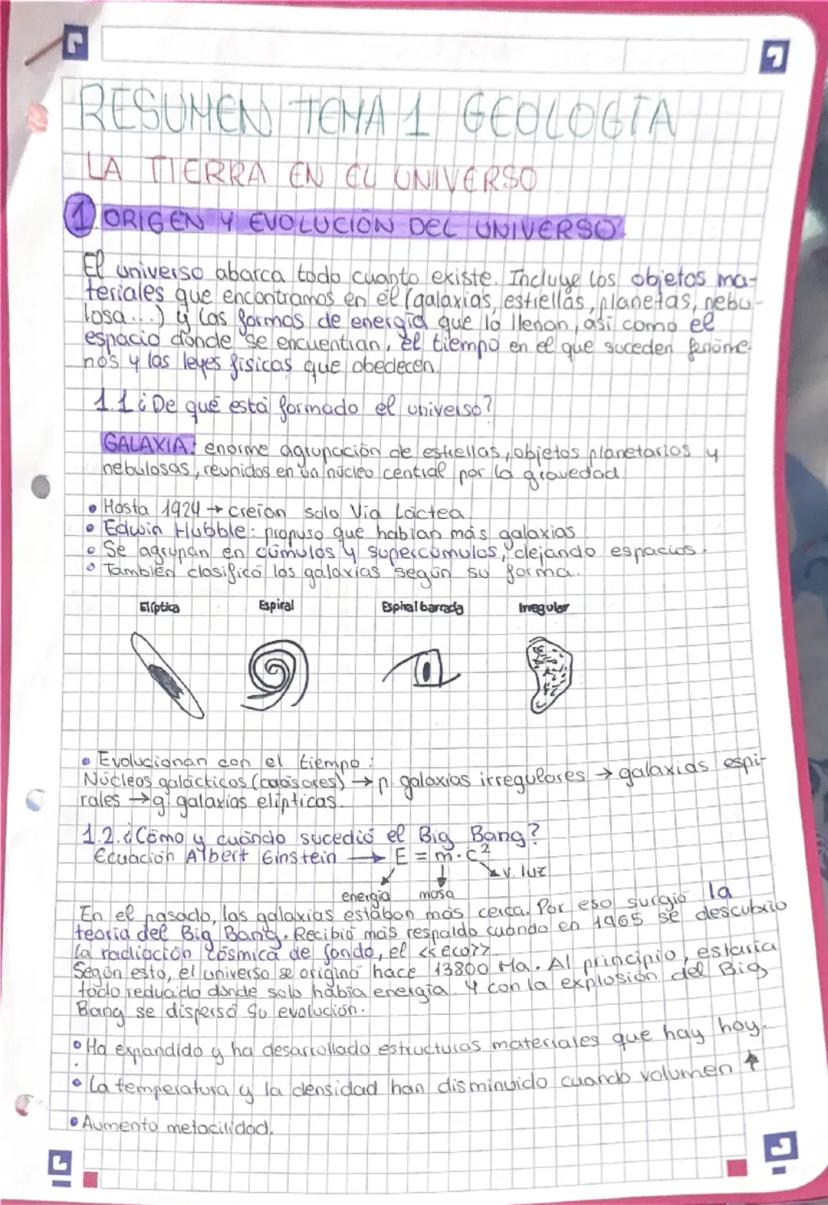 RESUMEN TEMA 1 GEOLOGÍA
LA TIERRA EN EL UNIVERSO
1. ORIGEN Y EVOLUCIÓN DEL UNIVERSO
El universo abarca todo cuanto existe. Incluye los objetos ma-
teriales que encontramos en él (galaxias, estrellas, planetas, nebu-
losa...) y las formas de energía que lo llenan, así como el
espacio donde se encuentran, el tiempo en el que suceden fenóme-
nos y las leyes físicas que obedecen.
1.1 ¿De qué está formado el universo?
GALAXIA: enorme agrupación de estrellas, objetos planetarios y
nebulosas, reunidos en un núcleo central por la gravedad
• Hasta 1924 → creían solo Vía Láctea
• Edwin Hubble: propuso que habían más galaxias
• Se agrupan en cúmulos y supercúmulos, dejando espacios.
• También clasificó las galaxias según su forma.
Elíptica Espiral Espiral barrada Irregular
• Evolucionan con el tiempo:
Núcleos galácticos → p. galaxias irregulares → galaxias espi-
rales → g. galaxias elípticas.
1.2. ¿Cómo y cuándo sucedió el Big Bang?
Ecuación Albert Einstein → E = m·c²
v. luz
energía masa
En el pasado, las galaxias estaban más cerca. Por eso surgió la
teoría del Big Bang. Recibió más respaldo cuando en 1965 se descubrio
la radiación cósmica de fondo, el <<eco>>
Según esto, el universo se originó hace 13800 Ma. Al principio, estaría
todo reducido donde solo había energía y con la explosión del Big
Bang se dispersó su evolución.
• Ha expandido y ha desarrollado estructuras materiales que hay hoy.
• La temperatura y la densidad han disminuido cuando volumen ↑
• Aumento metacilidad.